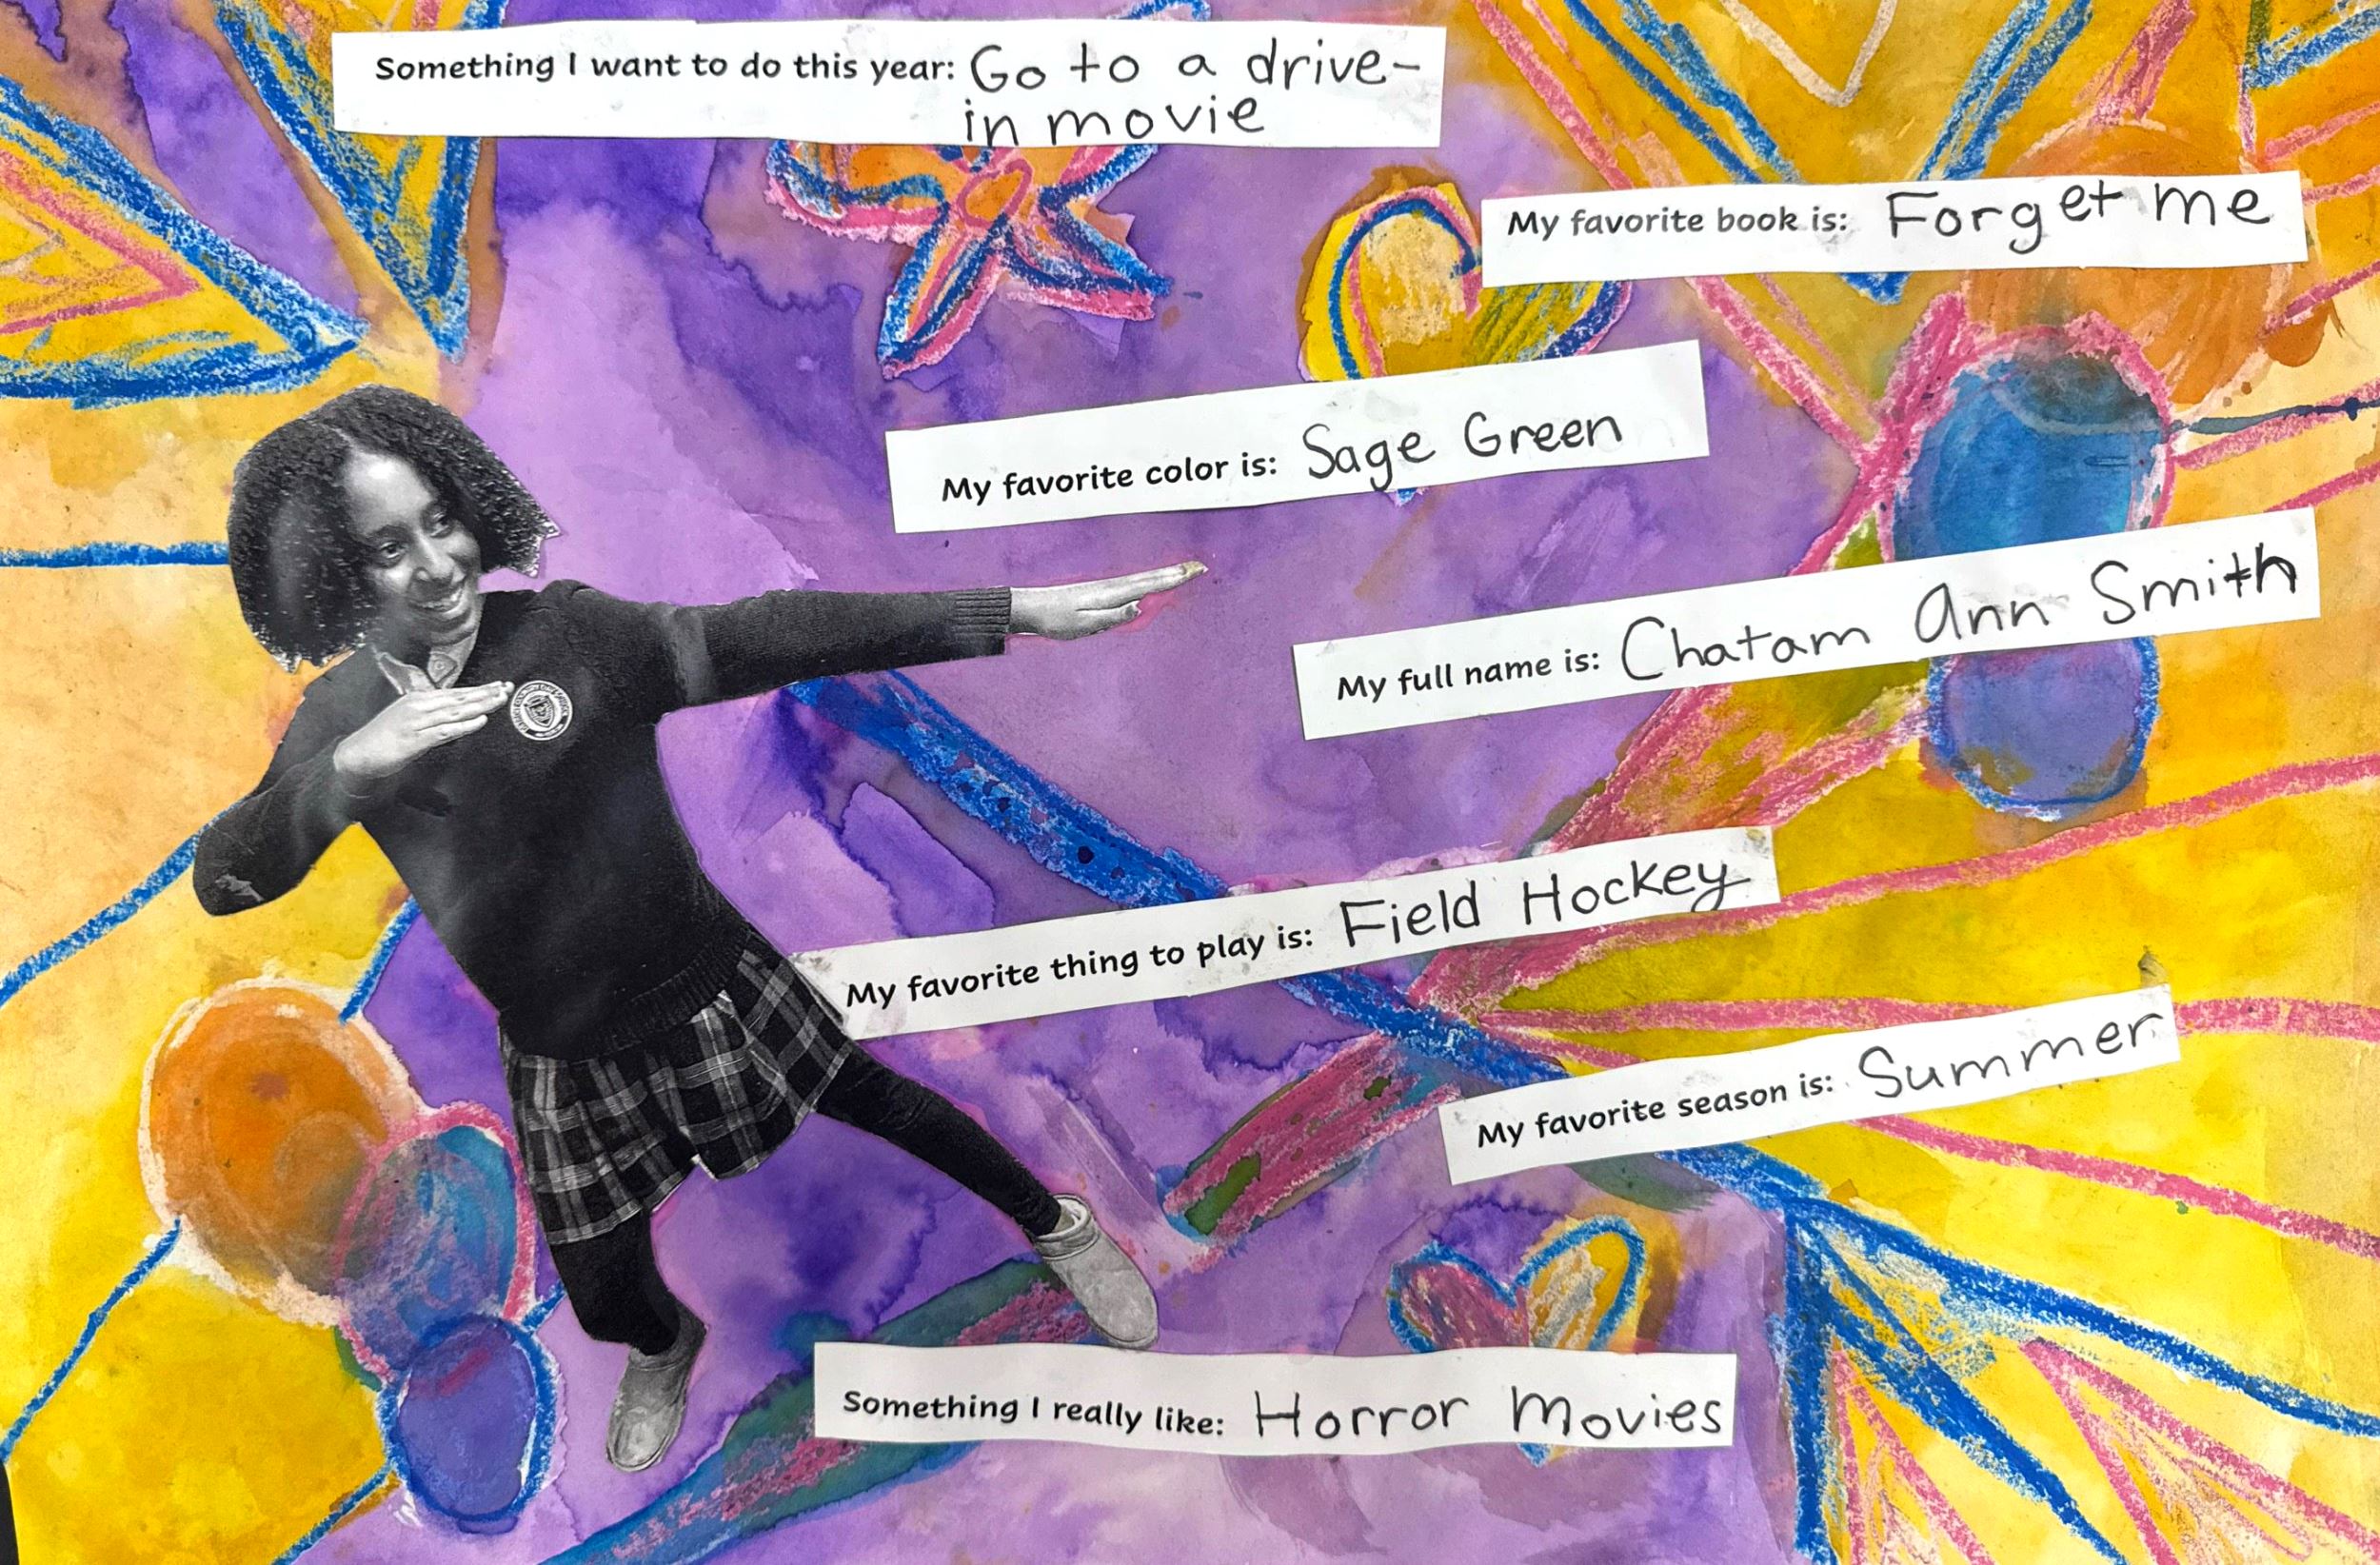 Something I want to do this year: Go to a drive-
in movie
My favorite book is: Forget me
My favorite color is: Sage Green
My full name is: Chatam Ann Smith
My favorite thing to play is: Field Hockey
My favorite season is: Summer
Something I really like: Horror Movies